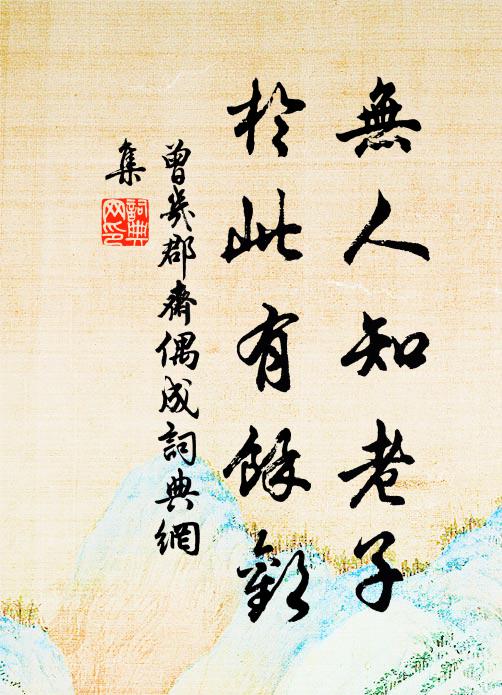 無人知老子
於此有餘歡
曾幾郡齋偶成詞典網
集
詞典網印